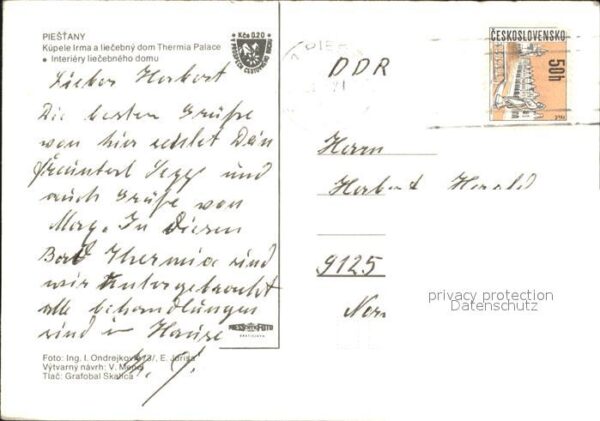 PIEŠŤANY
Kúpele Irma a liečebný dom Thermia Palace
● Interiéry liečebného domu
Kčs 0,20
Lieber Herbert
Die besten Grüße
von hier sendet Dein
und
auch Grüße von
In diesen
Bad Thermia sind
wir untergebracht
alle behandlungen
sind im Hause
PRESSFOTO
BRATISLAVA
Foto: Ing. I. Ondrejkovič /3/, E.
Výtvarný návrh: V.
Tlač: Grafobal Skalica
ČESKOSLOVENSKO
50h
DDR
Herrn
Herbert Herold
9125
privacy protection
Datenschutz